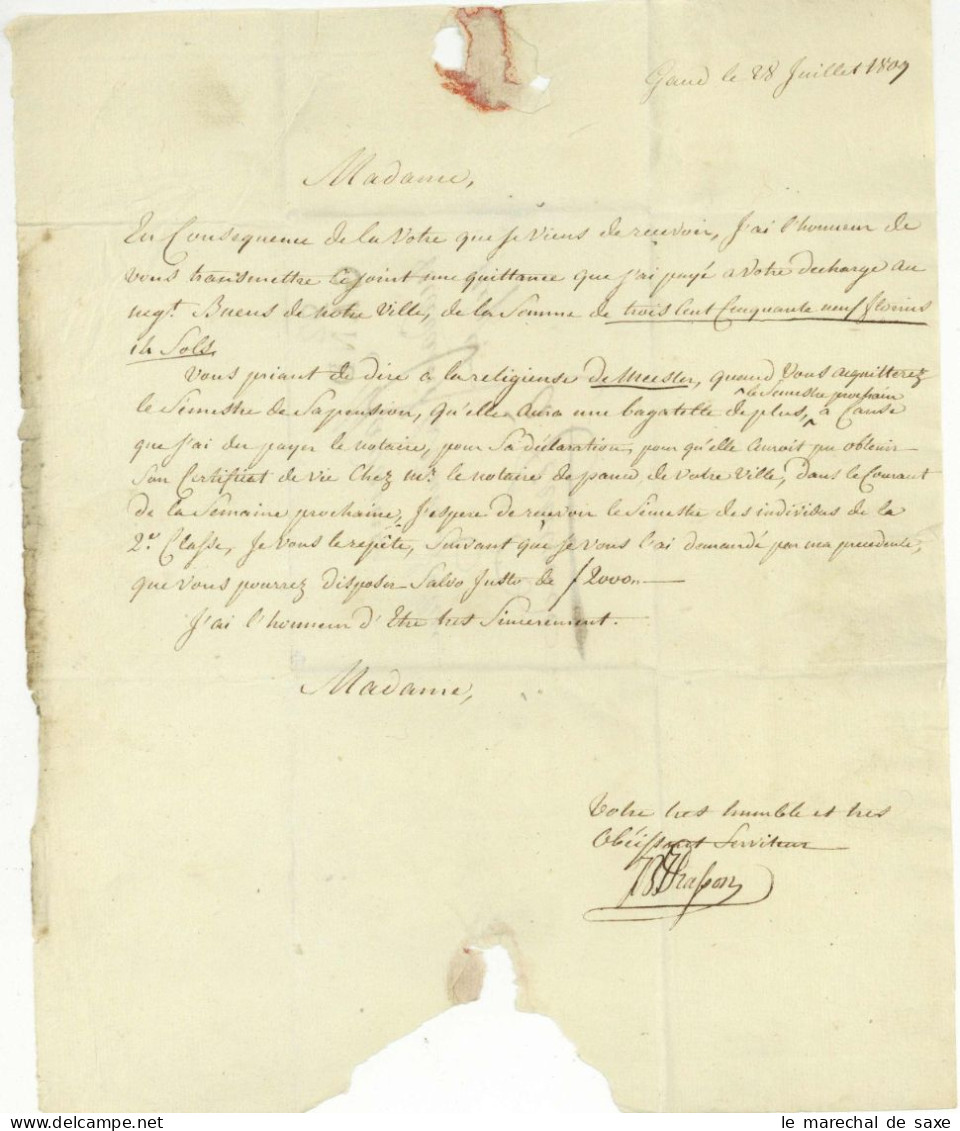 Gand le 28 Juillet 1809
Madame,
En Consequence de la Votre que je viens de recevoir, J'ai l'honneur de
vous transmettre ci joint une quittance que j'ai payé a votre decharge au
negt. Buens de notre Ville, de la Somme de trois Cent Cinquante neuf florins
14 Sols.
Vous priant de dire a la religieuse De Meester, quand Vous aquitterez
le Semestre de Sa pension, qu'elle aura une bagatelle de plus, ^ le Semestre prochain à Cause
que j'ai du payer le notaire, pour Sa déclaration, pour qu'elle auroit pu obtenir
Son Certificat de vie Chez Mr. le notaire de pauw de Votre Ville, dans le Courant
de la Semaine prochaine, J'espere de recevoir le Semestre des individus de la
2e. Classe, Je vous le repête, Suivant que je vous l'ai demandé par ma precedente,
que vous pourrez disposer Salvo Justo de f 2000,,—
J'ai l'honneur d'Etre tres Sincerement.
Madame,
Votre tres humble et tres
Obéissant Serviteur
le marechal de saxe